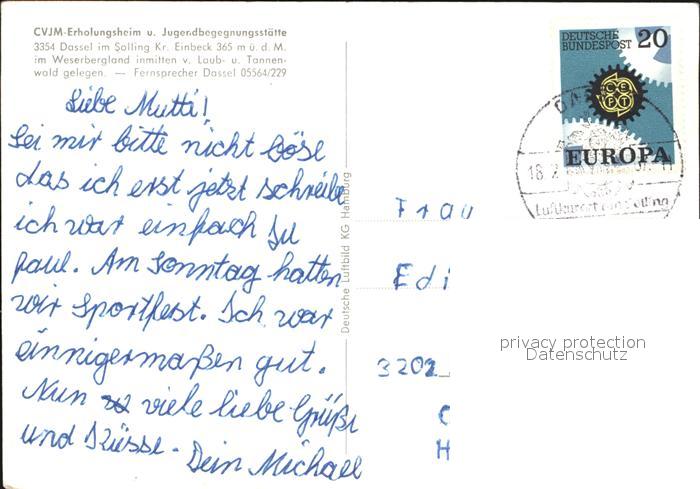 CVJM-Erholungsheim u. Jugendbegegnungsstätte
3354 Dassel im Solling Kr. Einbeck 365 m ü. d. M.
im Weserbergland inmitten v. Laub- u. Tannen-
wald gelegen. — Fernsprecher Dassel 05564/229
Liebe Mutti!
Sei mir bitte nicht böse
das ich erst jetzt schreibe
ich war einfach zu
faul. Am Sonntag hatten
wir Sportfest. Ich war
einnigermaßen gut.
Nun viele liebe Grüße
und Küsse. Dein Michael
Deutsche Luftbild KG Hamburg
DEUTSCHE
BUNDESPOST 20
CEPT
EUROPA
18.7
Luftkurort im Solling
Frau
Edi
3202
C
H
privacy protection
Datenschutz